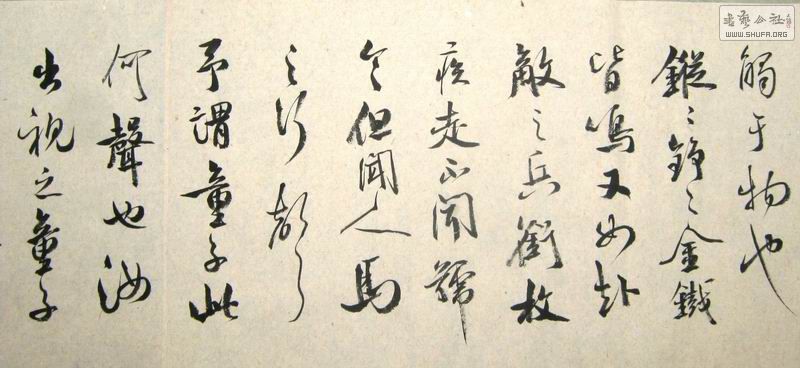 觸于物也
鏦〻錚〻金鐵
皆鳴又如赴
敵之兵銜枚
疾走不聞號
令但聞人馬
之行聲
予謂童子此
何聲也汝
出視之童子
书艺公社
WWW.SHUFA.ORG